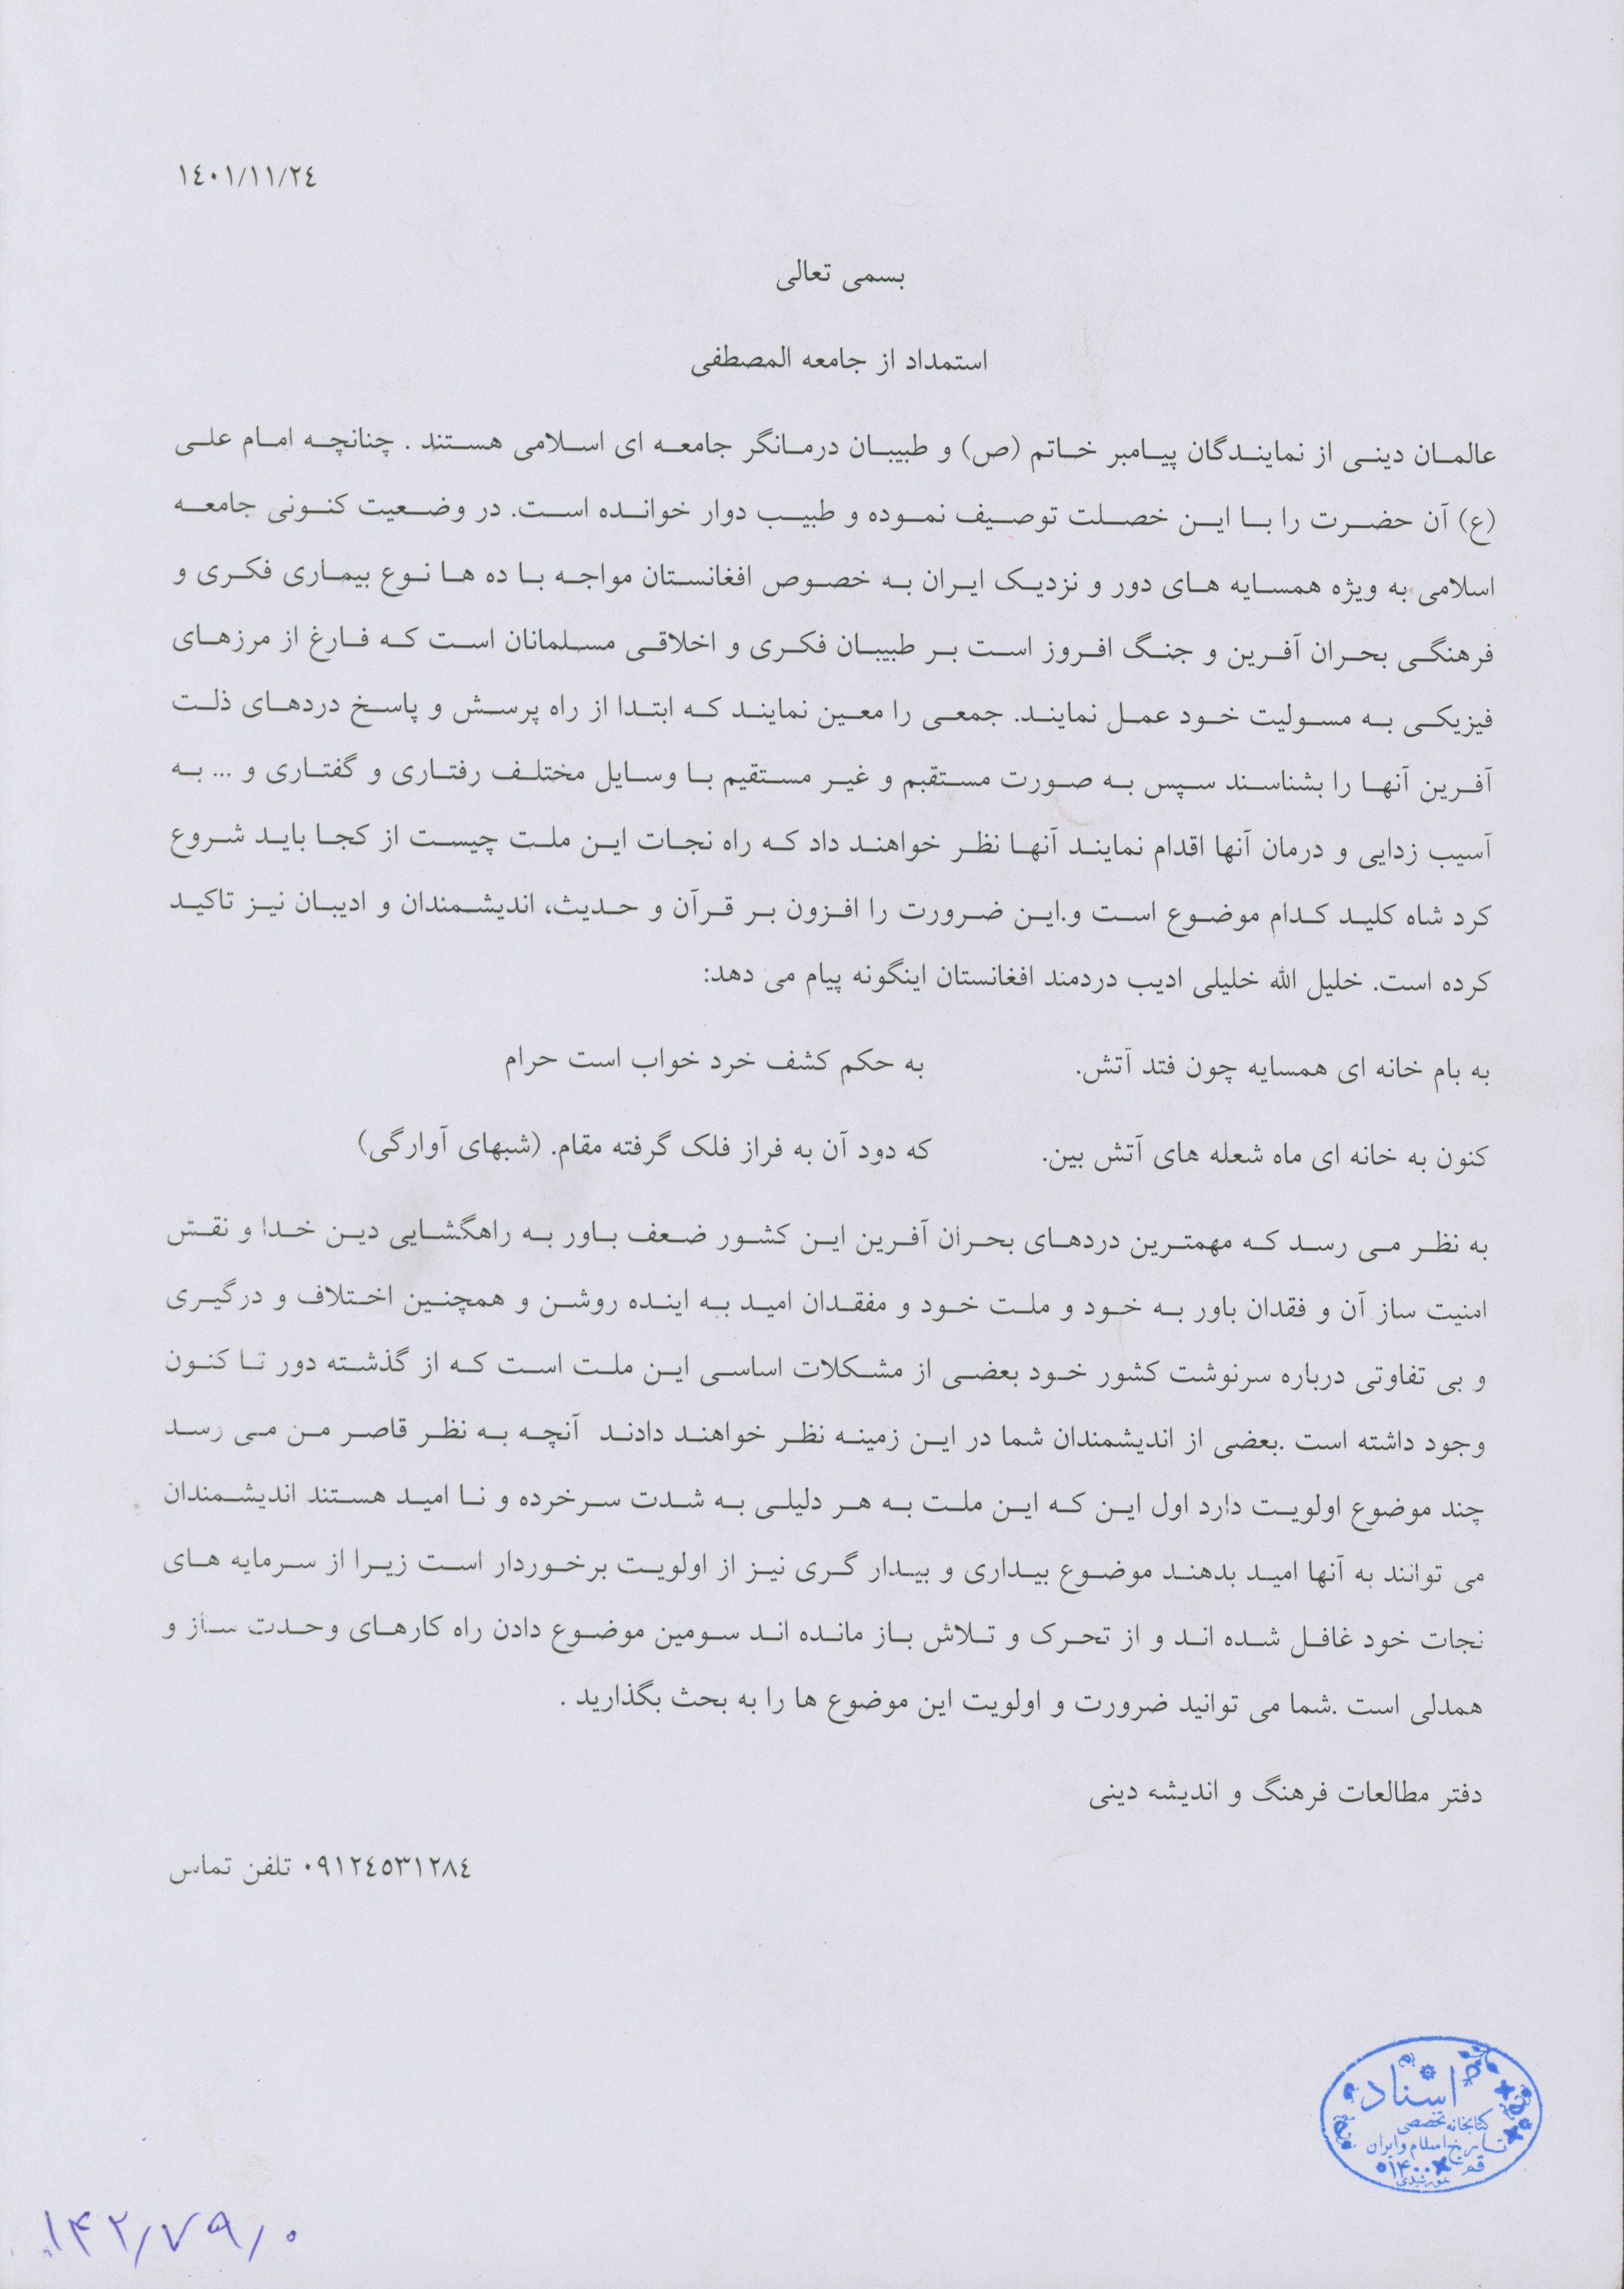 ١٤٠١/١١/٢٤
بسمی تعالی
استمداد از جامعه المصطفی
عالمان دینی از نمایندگان پیامبر خاتم (ص) و طبیبان درمانگر جامعه ای اسلامی هستند . چنانچه امام علی
(ع) آن حضرت را با این خصلت توصیف نموده و طبیب دوار خوانده است. در وضعیت کنونی جامعه
اسلامی به ویژه همسایه های دور و نزدیک ایران به خصوص افغانستان مواجه با ده ها نوع بیماری فکری و
فرهنگی بحران آفرین و جنگ افروز است بر طبیبان فکری و اخلاقی مسلمانان است که فارغ از مرزهای
فیزیکی به مسولیت خود عمل نمایند. جمعی را معین نمایند که ابتدا از راه پرسش و پاسخ دردهای ذلت
آفرین آنها را بشناسند سپس به صورت مستقبم و غیر مستقیم با وسایل مختلف رفتاری و گفتاری و ... به
آسیب زدایی و درمان آنها اقدام نمایند آنها نظر خواهند داد که راه نجات این ملت چیست از کجا باید شروع
کرد شاه کلید کدام موضوع است و.این ضرورت را افزون بر قرآن و حدیث، اندیشمندان و ادیبان نیز تاکید
کرده است. خلیل الله خلیلی ادیب دردمند افغانستان اینگونه پیام می دهد:
به بام خانه ای همسایه چون فتد آتش. به حکم کشف خرد خواب است حرام
کنون به خانه ای ماه شعله های آتش بین. که دود آن به فراز فلک گرفته مقام. (شبهای آوارگی)
به نظر می رسد که مهمترین دردهای بحران آفرین این کشور ضعف باور به راهگشایی دین خدا و نقش
امنیت ساز آن و فقدان باور به خود و ملت خود و مفقدان امید به اینده روشن و همچنین اختلاف و درگیری
و بی تفاوتی درباره سرنوشت کشور خود بعضی از مشکلات اساسی این ملت است که از گذشته دور تا کنون
وجود داشته است .بعضی از اندیشمندان شما در این زمینه نظر خواهند دادند آنچه به نظر قاصر من می رسد
چند موضوع اولویت دارد اول این که این ملت به هر دلیلی به شدت سرخرده و نا امید هستند اندیشمندان
می توانند به آنها امید بدهند موضوع بیداری و بیدار گری نیز از اولویت برخوردار است زیرا از سرمایه های
نجات خود غافل شده اند و از تحرک و تلاش باز مانده اند سومین موضوع دادن راه کارهای وحدت ساز و
همدلی است .شما می توانید ضرورت و اولویت این موضوع ها را به بحث بگذارید .
دفتر مطالعات فرهنگ و اندیشه دینی
٠٩١٢٤٥٣١٢٨٤ تلفن تماس
اسناد
کتابخانه تخصصی
تاریخ اسلام و ایران
قم ۱۴۰۰
خورشیدی
۱۴۲/۷۹/۰